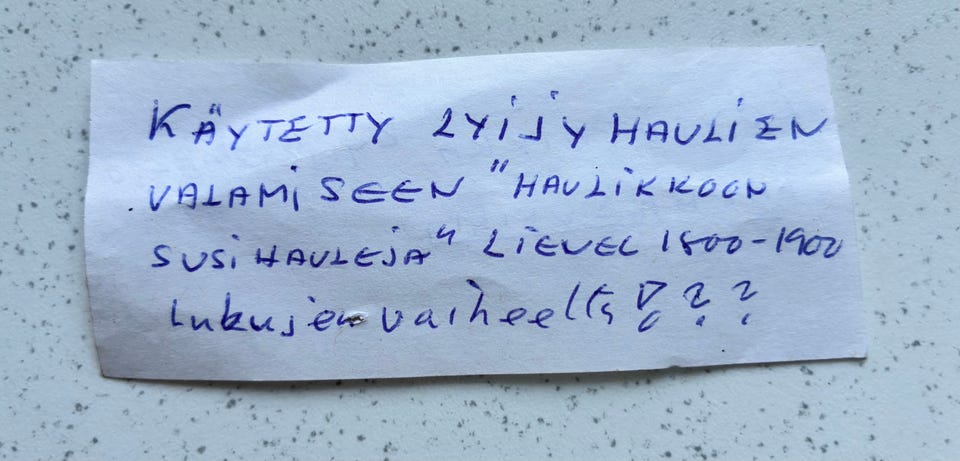 KÄYTETTY LYIJYHAULIEN
VALAMISEEN "HAULIKKOON
SUSIHAULEJA" LIENEE 1800-1900
Lukujen vaiheelta ! ? ?